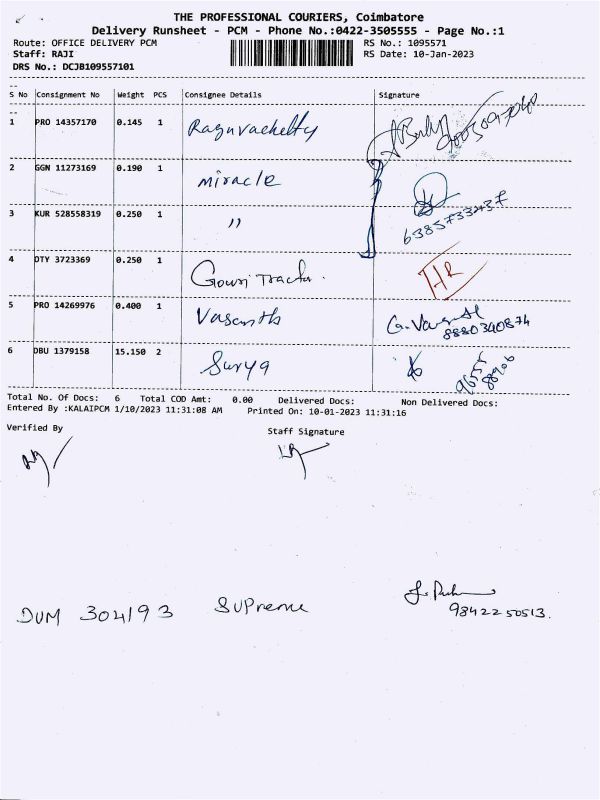 THE PROFESSIONAL COURIERS, Coimbatore
Delivery Runsheet - PCM - Phone No.:0422-3505555 - Page No.:1
Route: OFFICE DELIVERY PCM RS No.: 1095571
Staff: RAJI RS Date: 10-Jan-2023
DRS No.: DCJB109557101
S No Consignment No Weight PCS Consignee Details Signature
1 PRO 14357170 0.145 1 Raguvachetty
2 GGN 11273169 0.190 1 miracle
3 KUR 528558319 0.250 1 " 6385733437
4 DTY 3723369 0.250 1 Gowri Tractor. HR
5 PRO 14269976 0.400 1 Vasanth 8880340874
6 DBU 1379158 15.150 2 Surya 9655 88906
Total No. Of Docs: 6 Total COD Amt: 0.00 Delivered Docs: Non Delivered Docs:
Entered By :KALAIPCM 1/10/2023 11:31:08 AM Printed On: 10-01-2023 11:31:16
Verified By Staff Signature
DUM 304193 Supreme
9842250513.